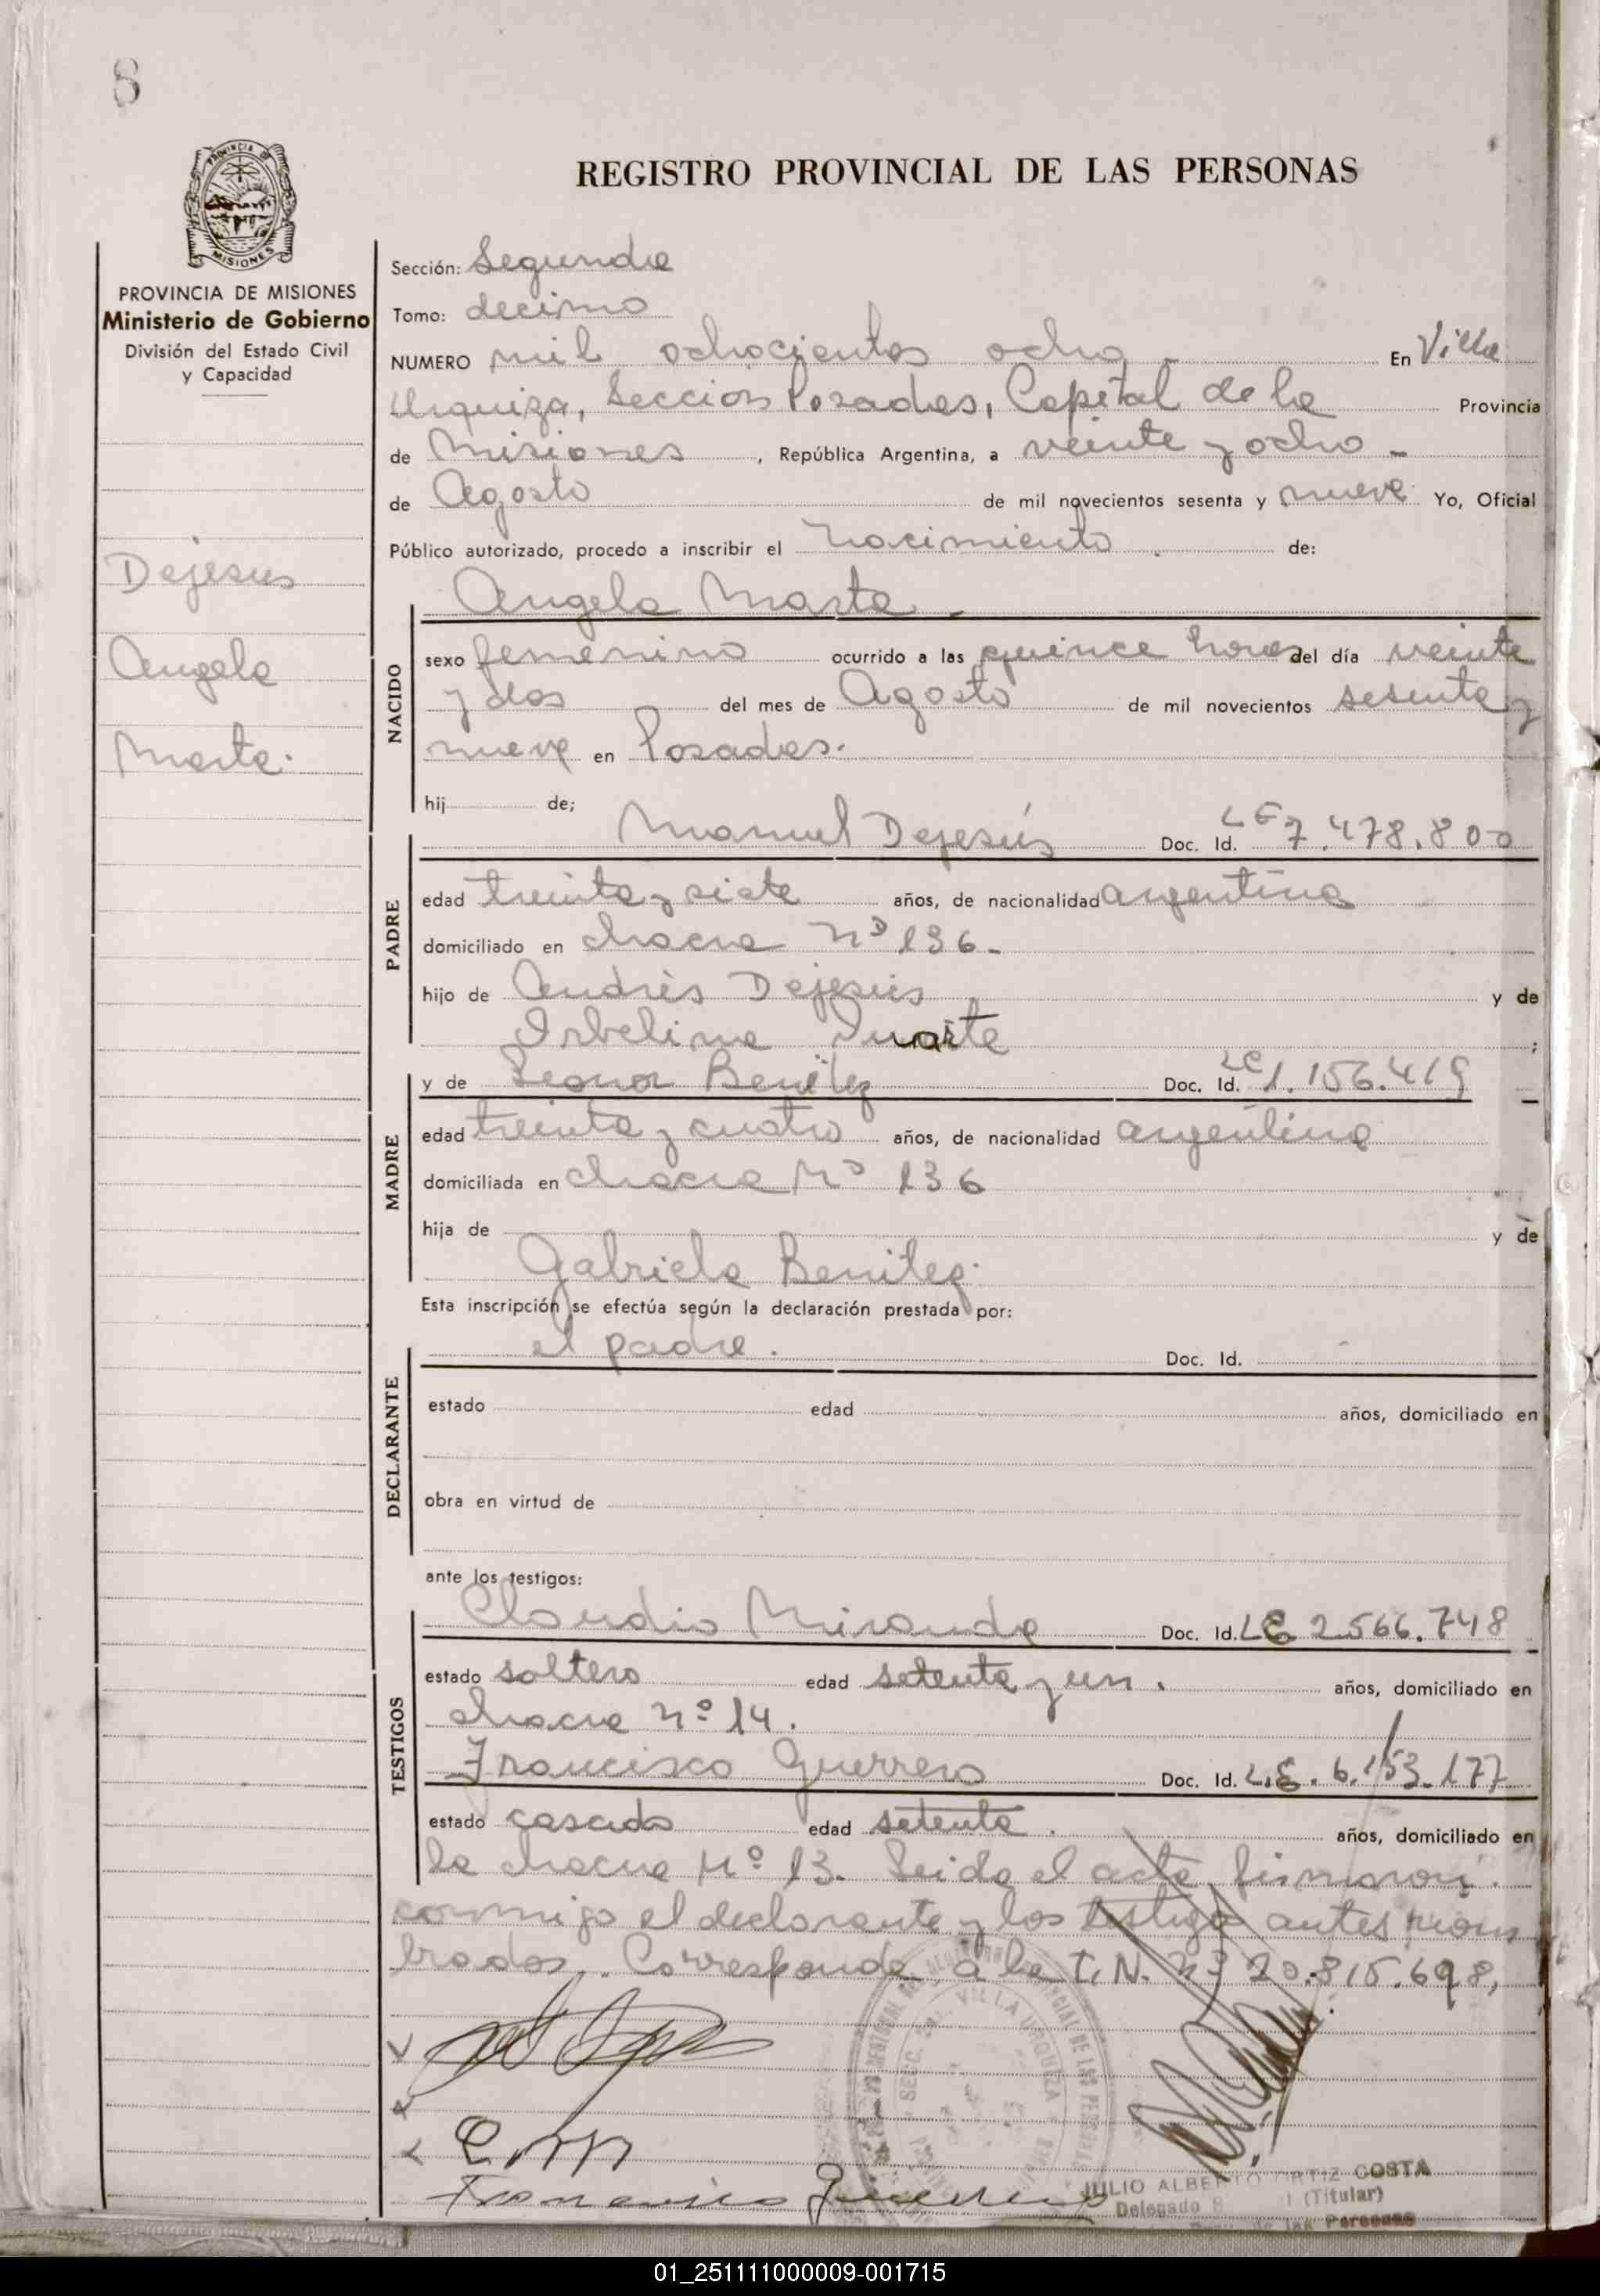 8
PROVINCIA DE
MISIONES
REGISTRO PROVINCIAL DE LAS PERSONAS
PROVINCIA DE MISIONES
Ministerio de Gobierno
División del Estado Civil
y Capacidad
Dejesus
Angela
Marta.
Sección: Segunda
Tomo: decimo
NUMERO mil ochocientos ocho - En Villa
Urquiza, Sección Posadas, Capital de la Provincia
de Misiones, República Argentina, a veinte y ocho -
de Agosto de mil novecientos sesenta y nueve Yo, Oficial
Público autorizado, procedo a inscribir el nacimiento de:
Angela Marta -
NACIDO
sexo femenino ocurrido a las quince horas del día veinte
y dos del mes de Agosto de mil novecientos sesenta y
nueve en Posadas.
hij de;
Manuel Dejesús Doc. Id. LE 7.478.800
PADRE
edad treinta y siete años, de nacionalidad argentina
domiciliado en chacra Nº 136-
hijo de Andrés Dejesús y de
Duarte ;
y de Leonor Benitez Doc. Id. LC 1.156.419
MADRE
edad treinta y cuatro años, de nacionalidad argentina
domiciliada en chacra Nº 136
hija de y de
Gabriela Benitez.
Esta inscripción se efectúa según la declaración prestada por:
el padre. Doc. Id. -
DECLARANTE
estado edad años, domiciliado en
obra en virtud de
ante los testigos:
Claudio Miranda Doc. Id. LE 2.566.748
TESTIGOS
estado soltero edad setenta y un. años, domiciliado en
chacra nº 14.
Francisco Guerrero Doc. Id. L.E. 6.153.177
estado casado edad setenta. años, domiciliado en
la chacra Nº 13. Leida el acta firmaron
conmigo el declarante y los testigos antes nom
brados. Corresponde a la T.N. Nº 20.815.698,
SECC. VILLA URQUIZA
C.M
Francisco Guerrero
JULIO ALBERTO ORTIZ COSTA
Delegado (Titular)
de las Personas
01_251111000009-001715